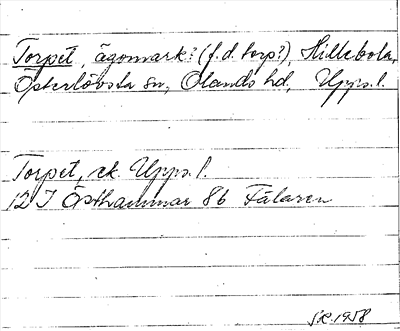 Torpet, ägomark? (f.d. torp?), Hillebola,
Österlövsta sn, Olands hd, Upps. l.
Torpet, ek. Upps. l.
12 I Östhammar 8b Fälaren
1958